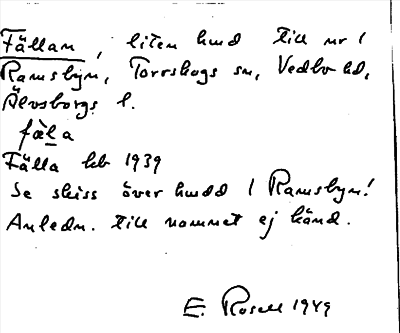 Fällan, liten hmd till nr 1
Ramsbyn, Torrskogs sn, Vedbo hd,
Älvsborgs l.
fæ̀la
Fälla kb 1939
Se skiss över hmdd i Ramsbyn!
Anledn. till namnet ej känd.
E. Rosell 1949